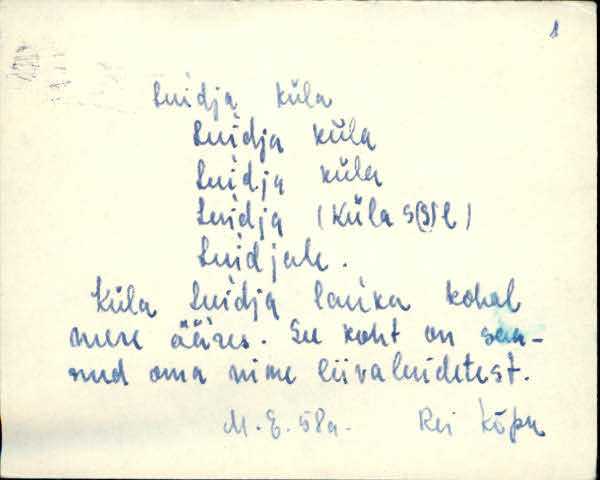 1
Luidja küla
Luidja küla
Luidja küla
Luidja (küla s(β)l)
Luidjale.
Küla Luidja lauka kohal
mere ääres. See koht on saa-
nud oma nime liivaluidetest.
M. E. 58a. Rei Kõpu